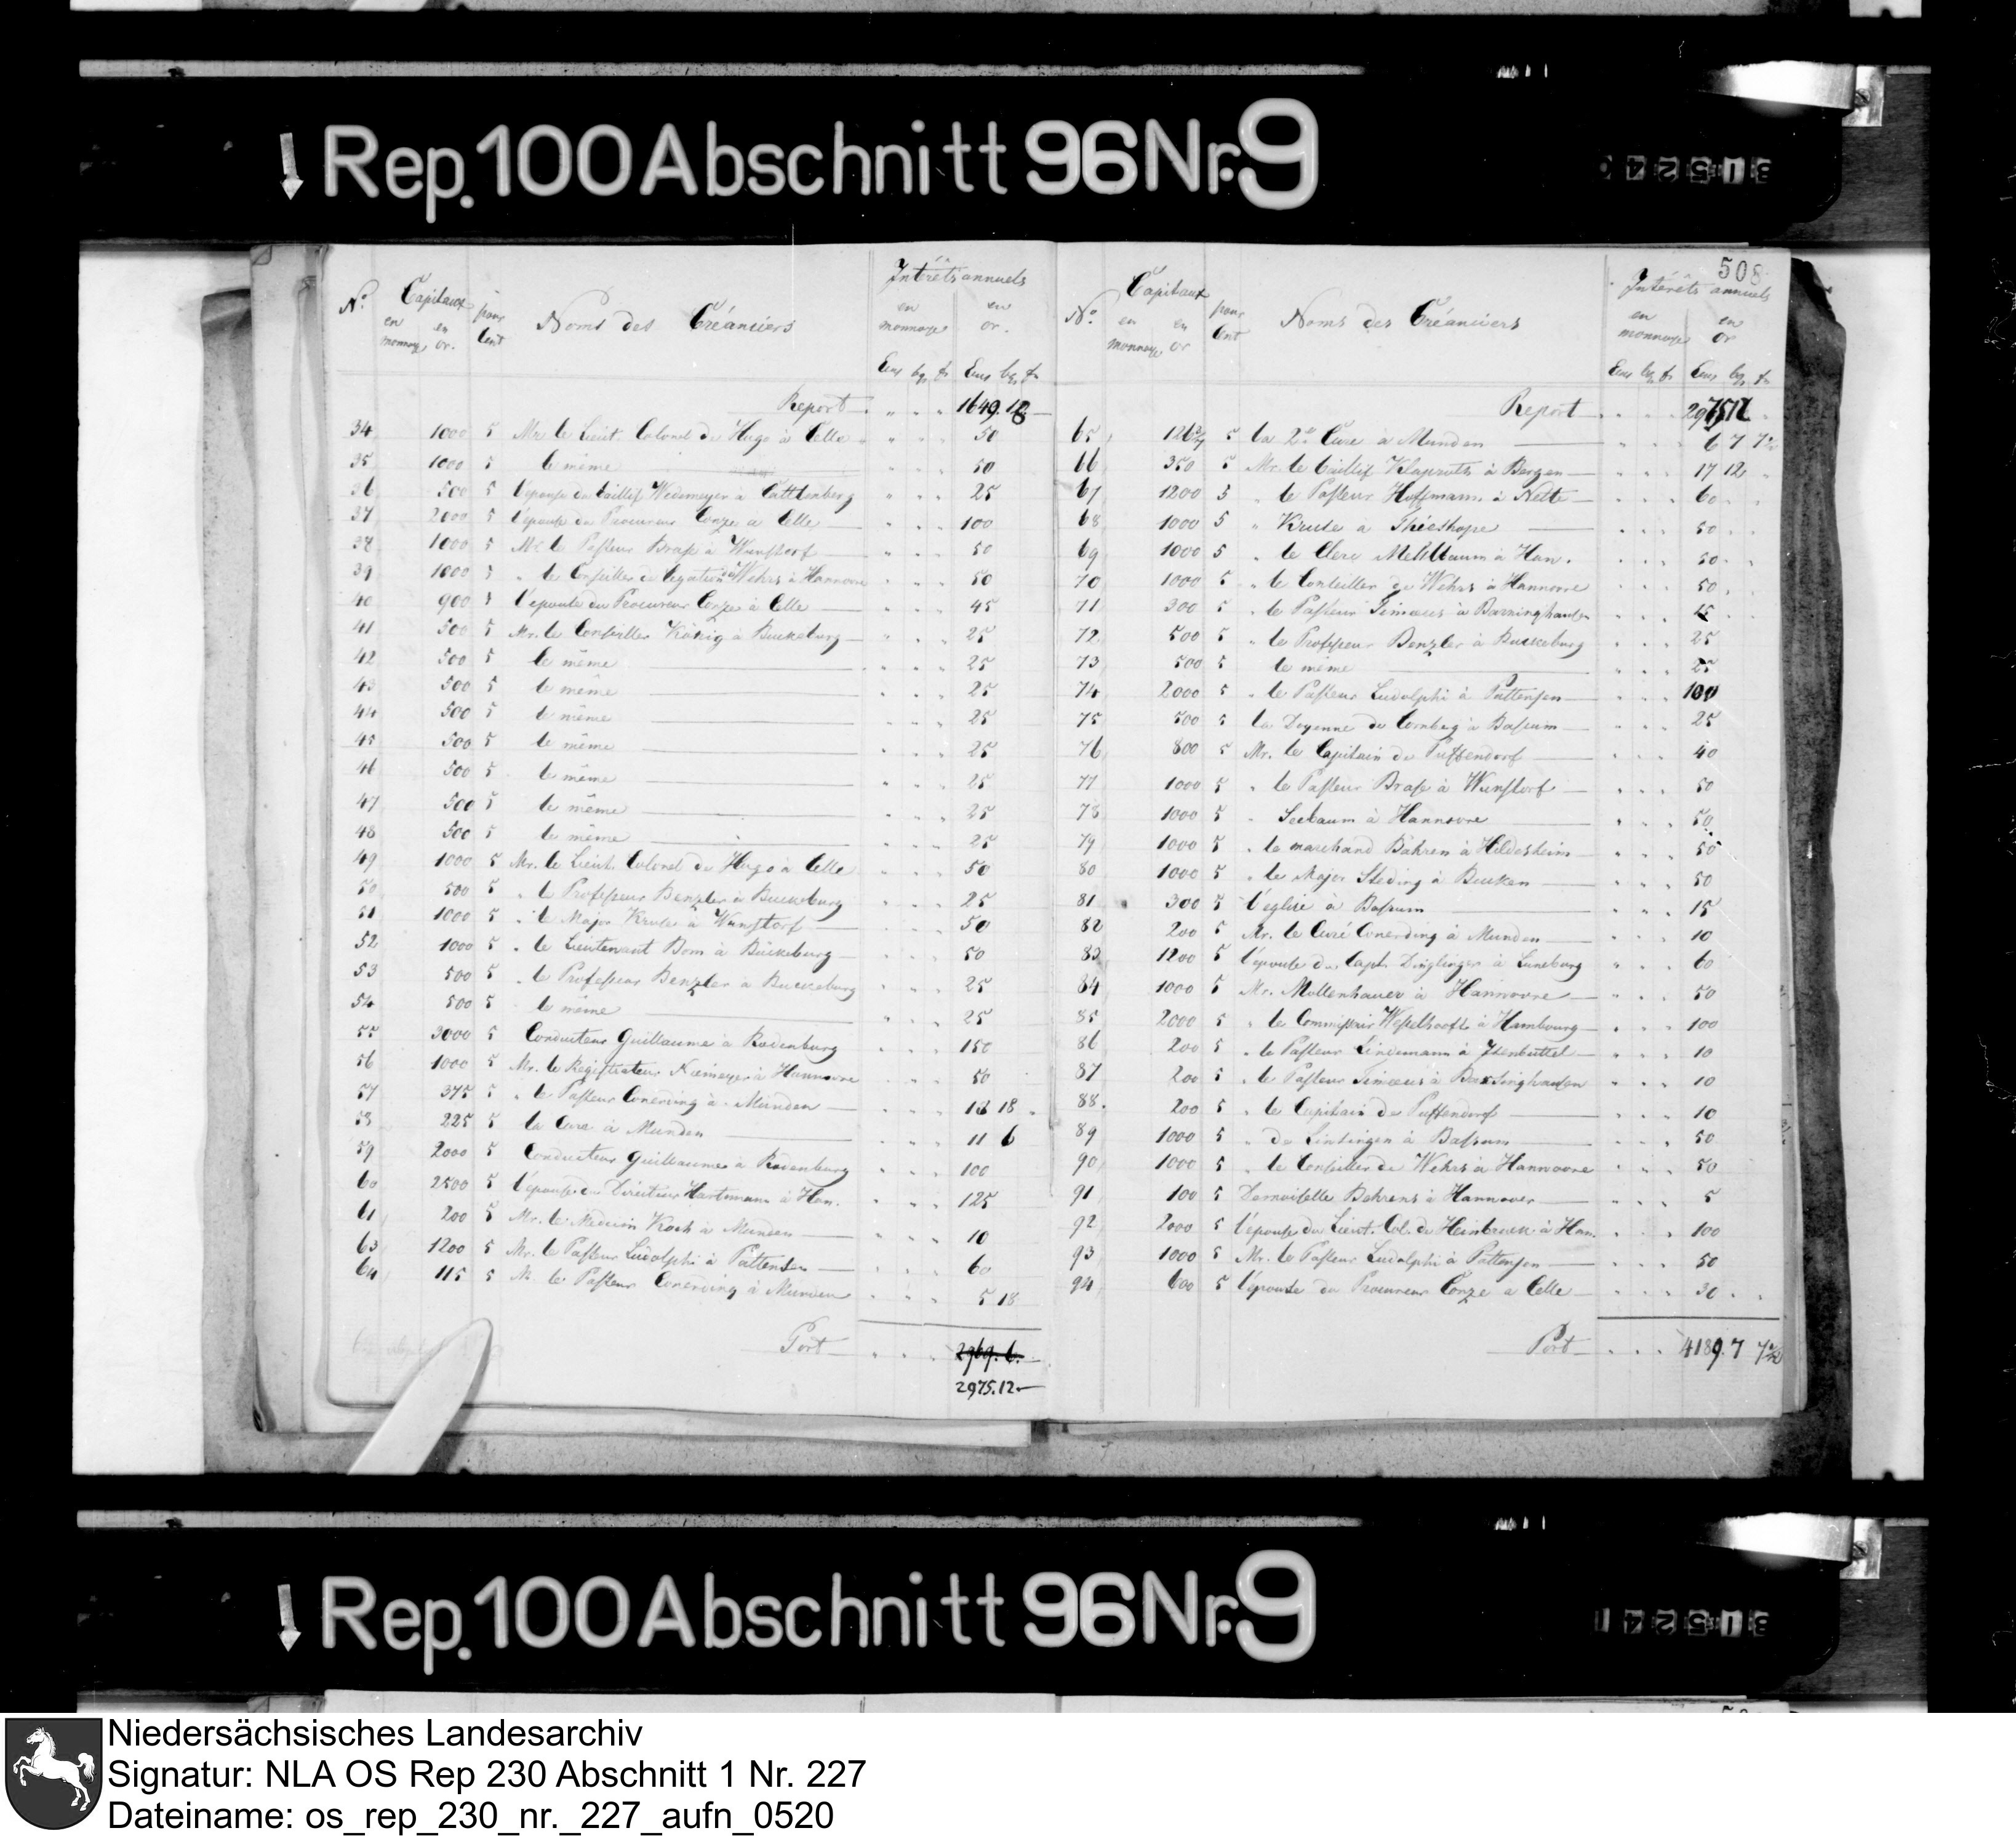 Rep. 100 Abschnitt 96 Nr. 9
315240
508
No. Capitaux en monnoye en or. pour Cent Noms des Créanciers Intérêts annuels en monnoye en or.
Ecus bg. fn Ecus bg. fn
Report 1649. 18
34 1000 5 Mr. le Lieut. Colonel de Hugo à Celle 50
35 1000 5 le même 50
36 500 5 l'épouse du baillif Wedemeyer à 25
37 2000 5 l'épouse du Procureur Conze a Celle 100
38 1000 5 Mr. le Pasteur Brase à Wunstorf 50
39 1000 5 " le Conseiller de Legation de Wehrs à Hannovre 50
40 900 5 l'epouse du Procureur Conze à Celle 45
41 500 5 Mr. le Conseiller König à Buckeburg 25
42 500 5 le même 25
43 500 5 le même 25
44 500 5 le même 25
45 500 5 le même 25
46 500 5 le même 25
47 500 5 le même 25
48 500 5 le même 25
49 1000 5 Mr. le Lieut. Colonel de Hugo à Celle 50
50 500 5 " le Professeur Benzler à Buckeburg 25
51 1000 5 " le Major Kruse à Wunstorf 50
52 1000 5 " le Lieutenant Bom à Bückeburg 50
53 500 5 " le Professeur Benzler a Buckeburg 25
54 500 5 le même 25
55 3000 5 Conducteur Guillaume à Rodenburg 150
56 1000 5 Mr. le Registrateur Niemeyer à Hannovre 50
57 375 5 " le Pasteur Conerding à Münden 18 18
58 225 5 la Cure à Munden 11 6
59 2000 5 Conducteur Guillaume à Rodenburg 100
60 2500 5 l'épouse du Directeur Hartmann à Han. 125
61 200 5 Mr. le Medecin Koch à Munden 10
63 1200 5 Mr. le Pasteur Ludolphi à Pattensen 60
64 115 5 Mr. le Pasteur Conerding à Munden 5 18
Port 2969. 6.
2975. 12
No. Capitaux en monnoye en or pour Cent Noms des Créanciers Intérêts annuels en monnoye en or
Ecus bg. fn Ecus bg. fn
Report 2975 12
65 5 la 2de Cure à Munden 6 7 7½
66 350 5 Mr. le baillif Klaproth à Bergen 17 12
67 1200 5 " le Pasteur Hoffmann à Nette 60
68 1000 5 " Kruse a Thieshope 50
69 1000 5 " le Clerc Mehlbaum à Han. 50
70 1000 5 " le Conseiller de Wehrs à Hannovre 50
71 300 5 " le Pasteur Timaeus à Barsinghausen 15
72 500 5 " le Professeur Benzler à Buckeburg 25
73 500 5 le même 25
74 2000 5 " le Pasteur Ludolphi à Pattensen 100
75 500 5 la Doyenne de Cornberg à Bassum 25
76 800 5 Mr. le Capitain de Puffendorf 40
77 1000 5 " le Pasteur Brase à Wunstorf 50
78 1000 5 " Seebaum à Hannovre 50
79 1000 5 " le marchand Bähren à Hildesheim 50
80 1000 5 " le Major Steding à Bucken 50
81 300 5 l'eglise à Bassum 15
82 200 5 Mr. le Curé Conerding à Munden 10
83 1200 5 l'epouse du Capt. Dinglinger à Luneburg 60
84 1000 5 Mr. Mollenhauer à Hannovre 50
85 2000 5 " le Commissair Wesselhooft à Hambourg 100
86 200 5 " le Pasteur Lindemann à Isenbüttel 10
87 200 5 " le Pasteur Timaeus à Barsinghausen 10
88. 200 5 " le Capitain de Puffendorf 10
89 1000 5 " de Linsingen à Bassum 50
90 1000 5 " le Conseiller de Wehrs à Hannovre 50
91 100 5 Demoiselle Behrens à Hannover 5
92 2000 5 l'épouse du Lieut. Col. de Heimbruck à Han. 100
93 1000 5 Mr. le Pasteur Ludolphi à Pattensen 50
94 600 5 l'épouse du Procureur Conze a Celle 30
Port 4189. 7 7½
Rep. 100 Abschnitt 96 Nr. 9
315241
Niedersächsisches Landesarchiv
Signatur: NLA OS Rep 230 Abschnitt 1 Nr. 227
Dateiname: os_rep_230_nr._227_aufn_0520